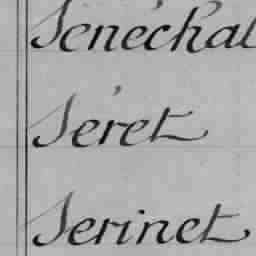 Sénéchal
Séret
Serinet